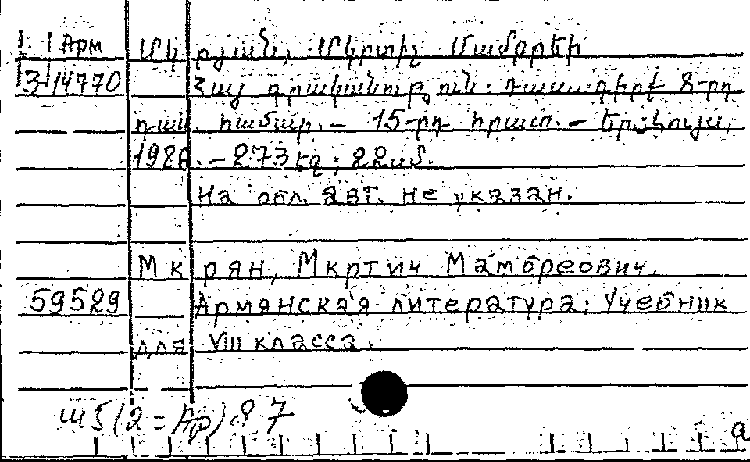 Арм Մկրյան, Մկրտիչ Մամբրեի
3 14770 Հայ գրականություն: Դասագիրք 8-րդ
դաս. համար. - 15-րդ հրատ. - Եր., Լույս,
198 . - 273 էջ; 22սմ.
На обл. авт. не указан.
Мкрян, Мкртич Мамбреович.
59529 Армянская литература: Учебник
для VIII класса.
Ш5(2=Ар) 87
а